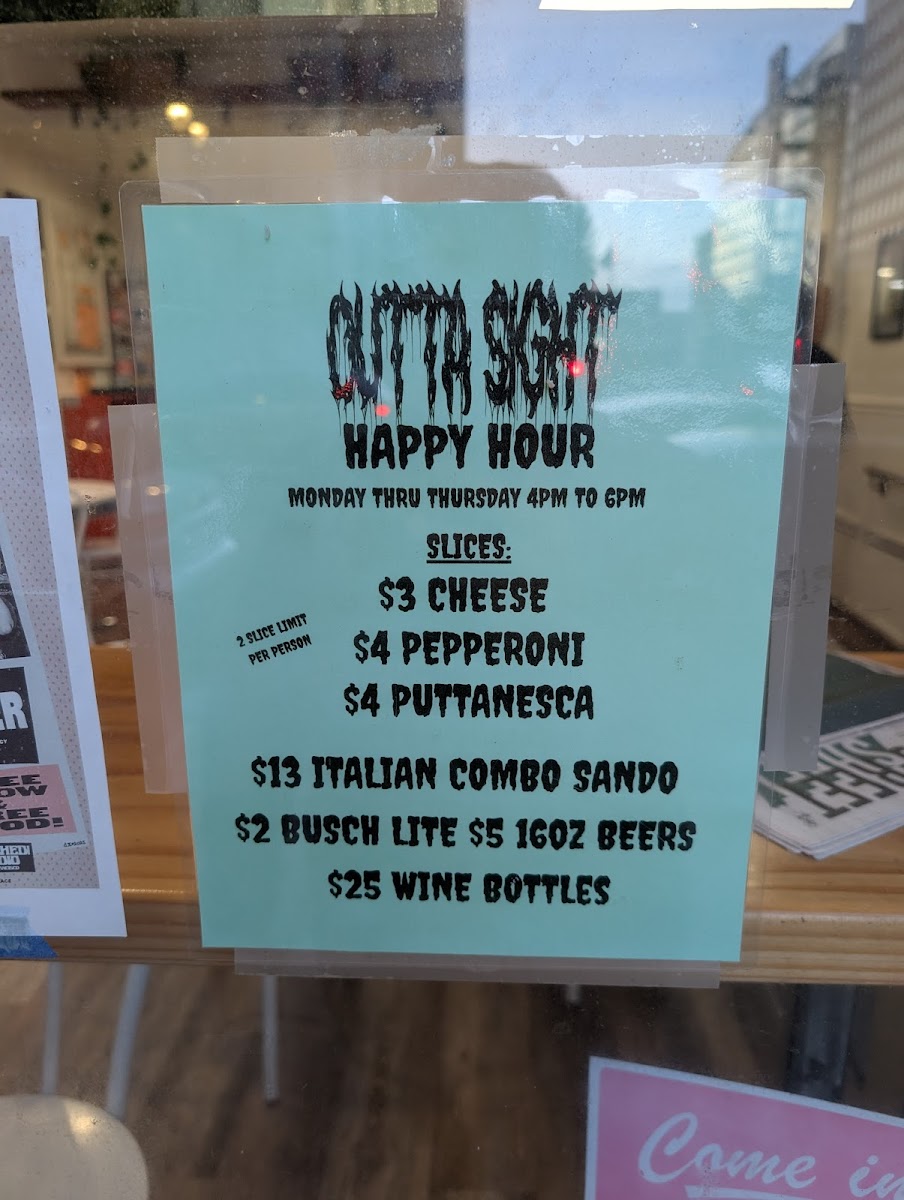 OUTTA SIGHT
HAPPY HOUR
MONDAY THRU THURSDAY 4PM TO 6PM
SLICES:
$3 CHEESE
2 SLICE LIMIT
PER PERSON
$4 PEPPERONI
$4 PUTTANESCA
$13 ITALIAN COMBO SANDO
$2 BUSCH LITE $5 16OZ BEERS
$25 WINE BOTTLES
Come in